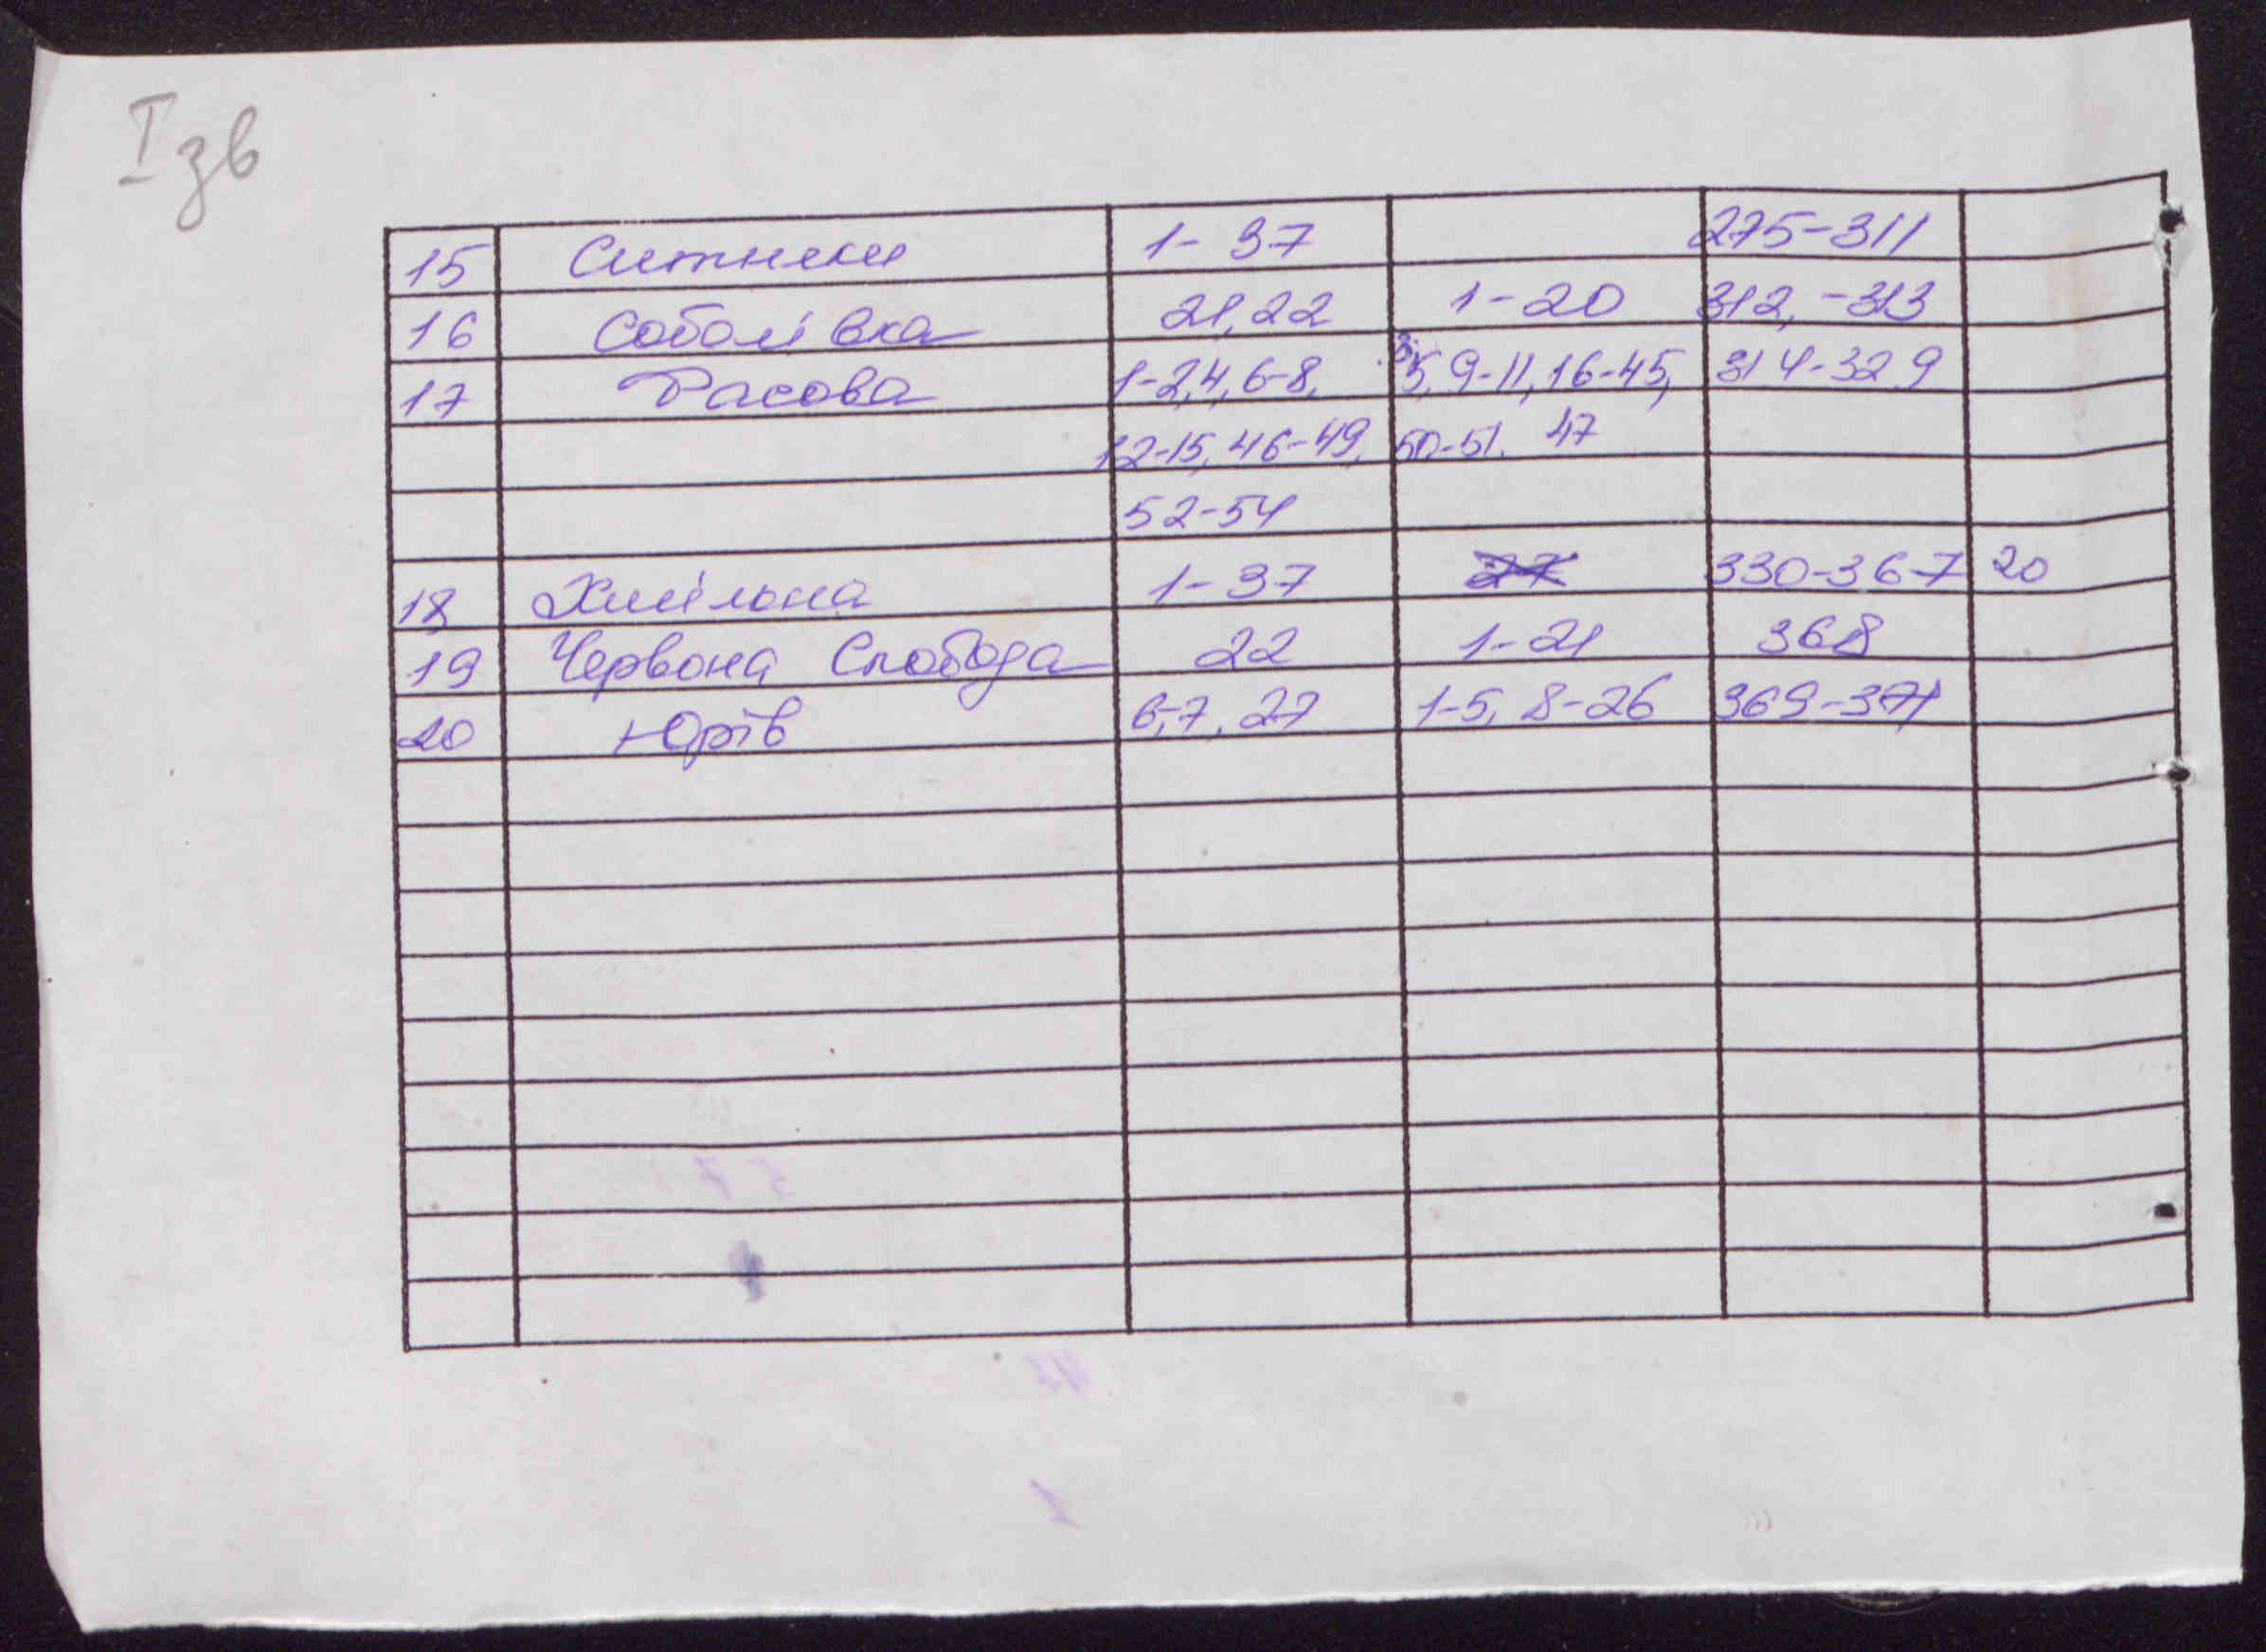 I зв
15 Ситники 1-37 275-311
16 Соболівка 21,22 1-20 312,-313
17 Расова 1-2,4,6-8, 3,5,9-11,16-45, 314-329
12-15,46-49, 50-51. 47
52-54
18 Хмільна 1-37 27 330-367 20
19 Червона Слобода 22 1-21 368
20 Юрів 6,7,27 1-5, 8-26 369-371